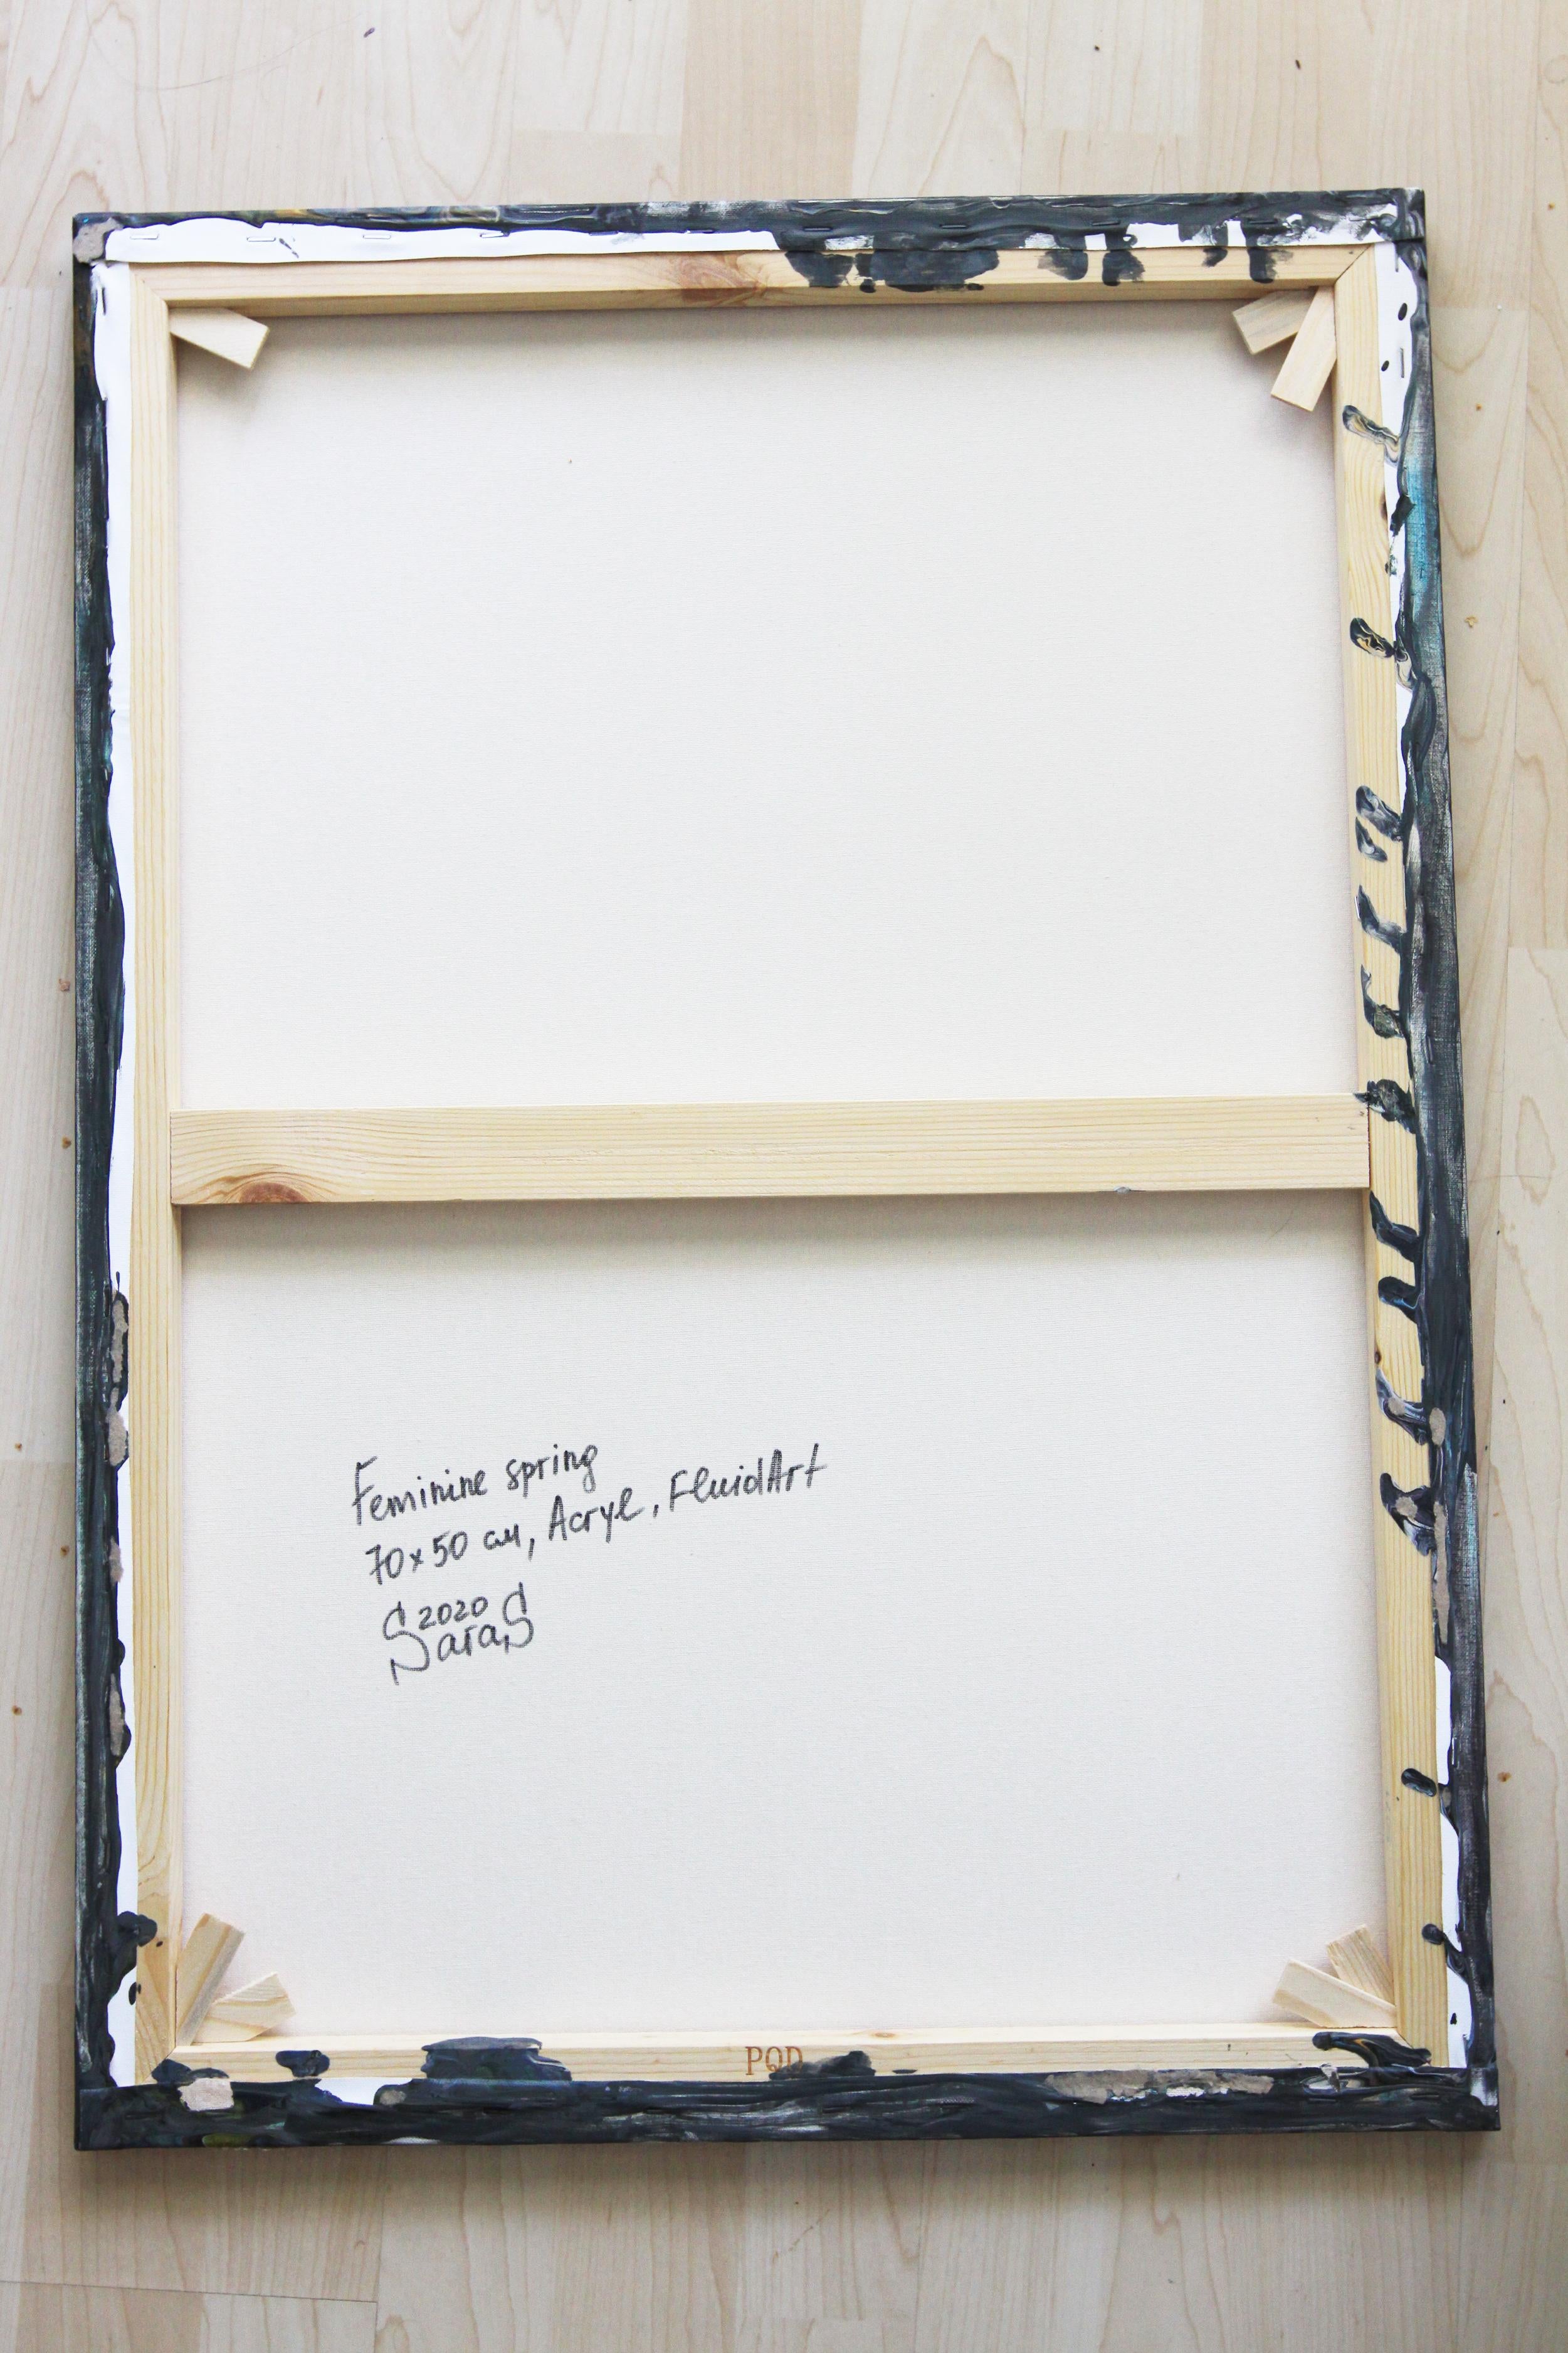 Feminine spring
70x50 см, Acryl, FluidArt
2020
SaraS
PQD